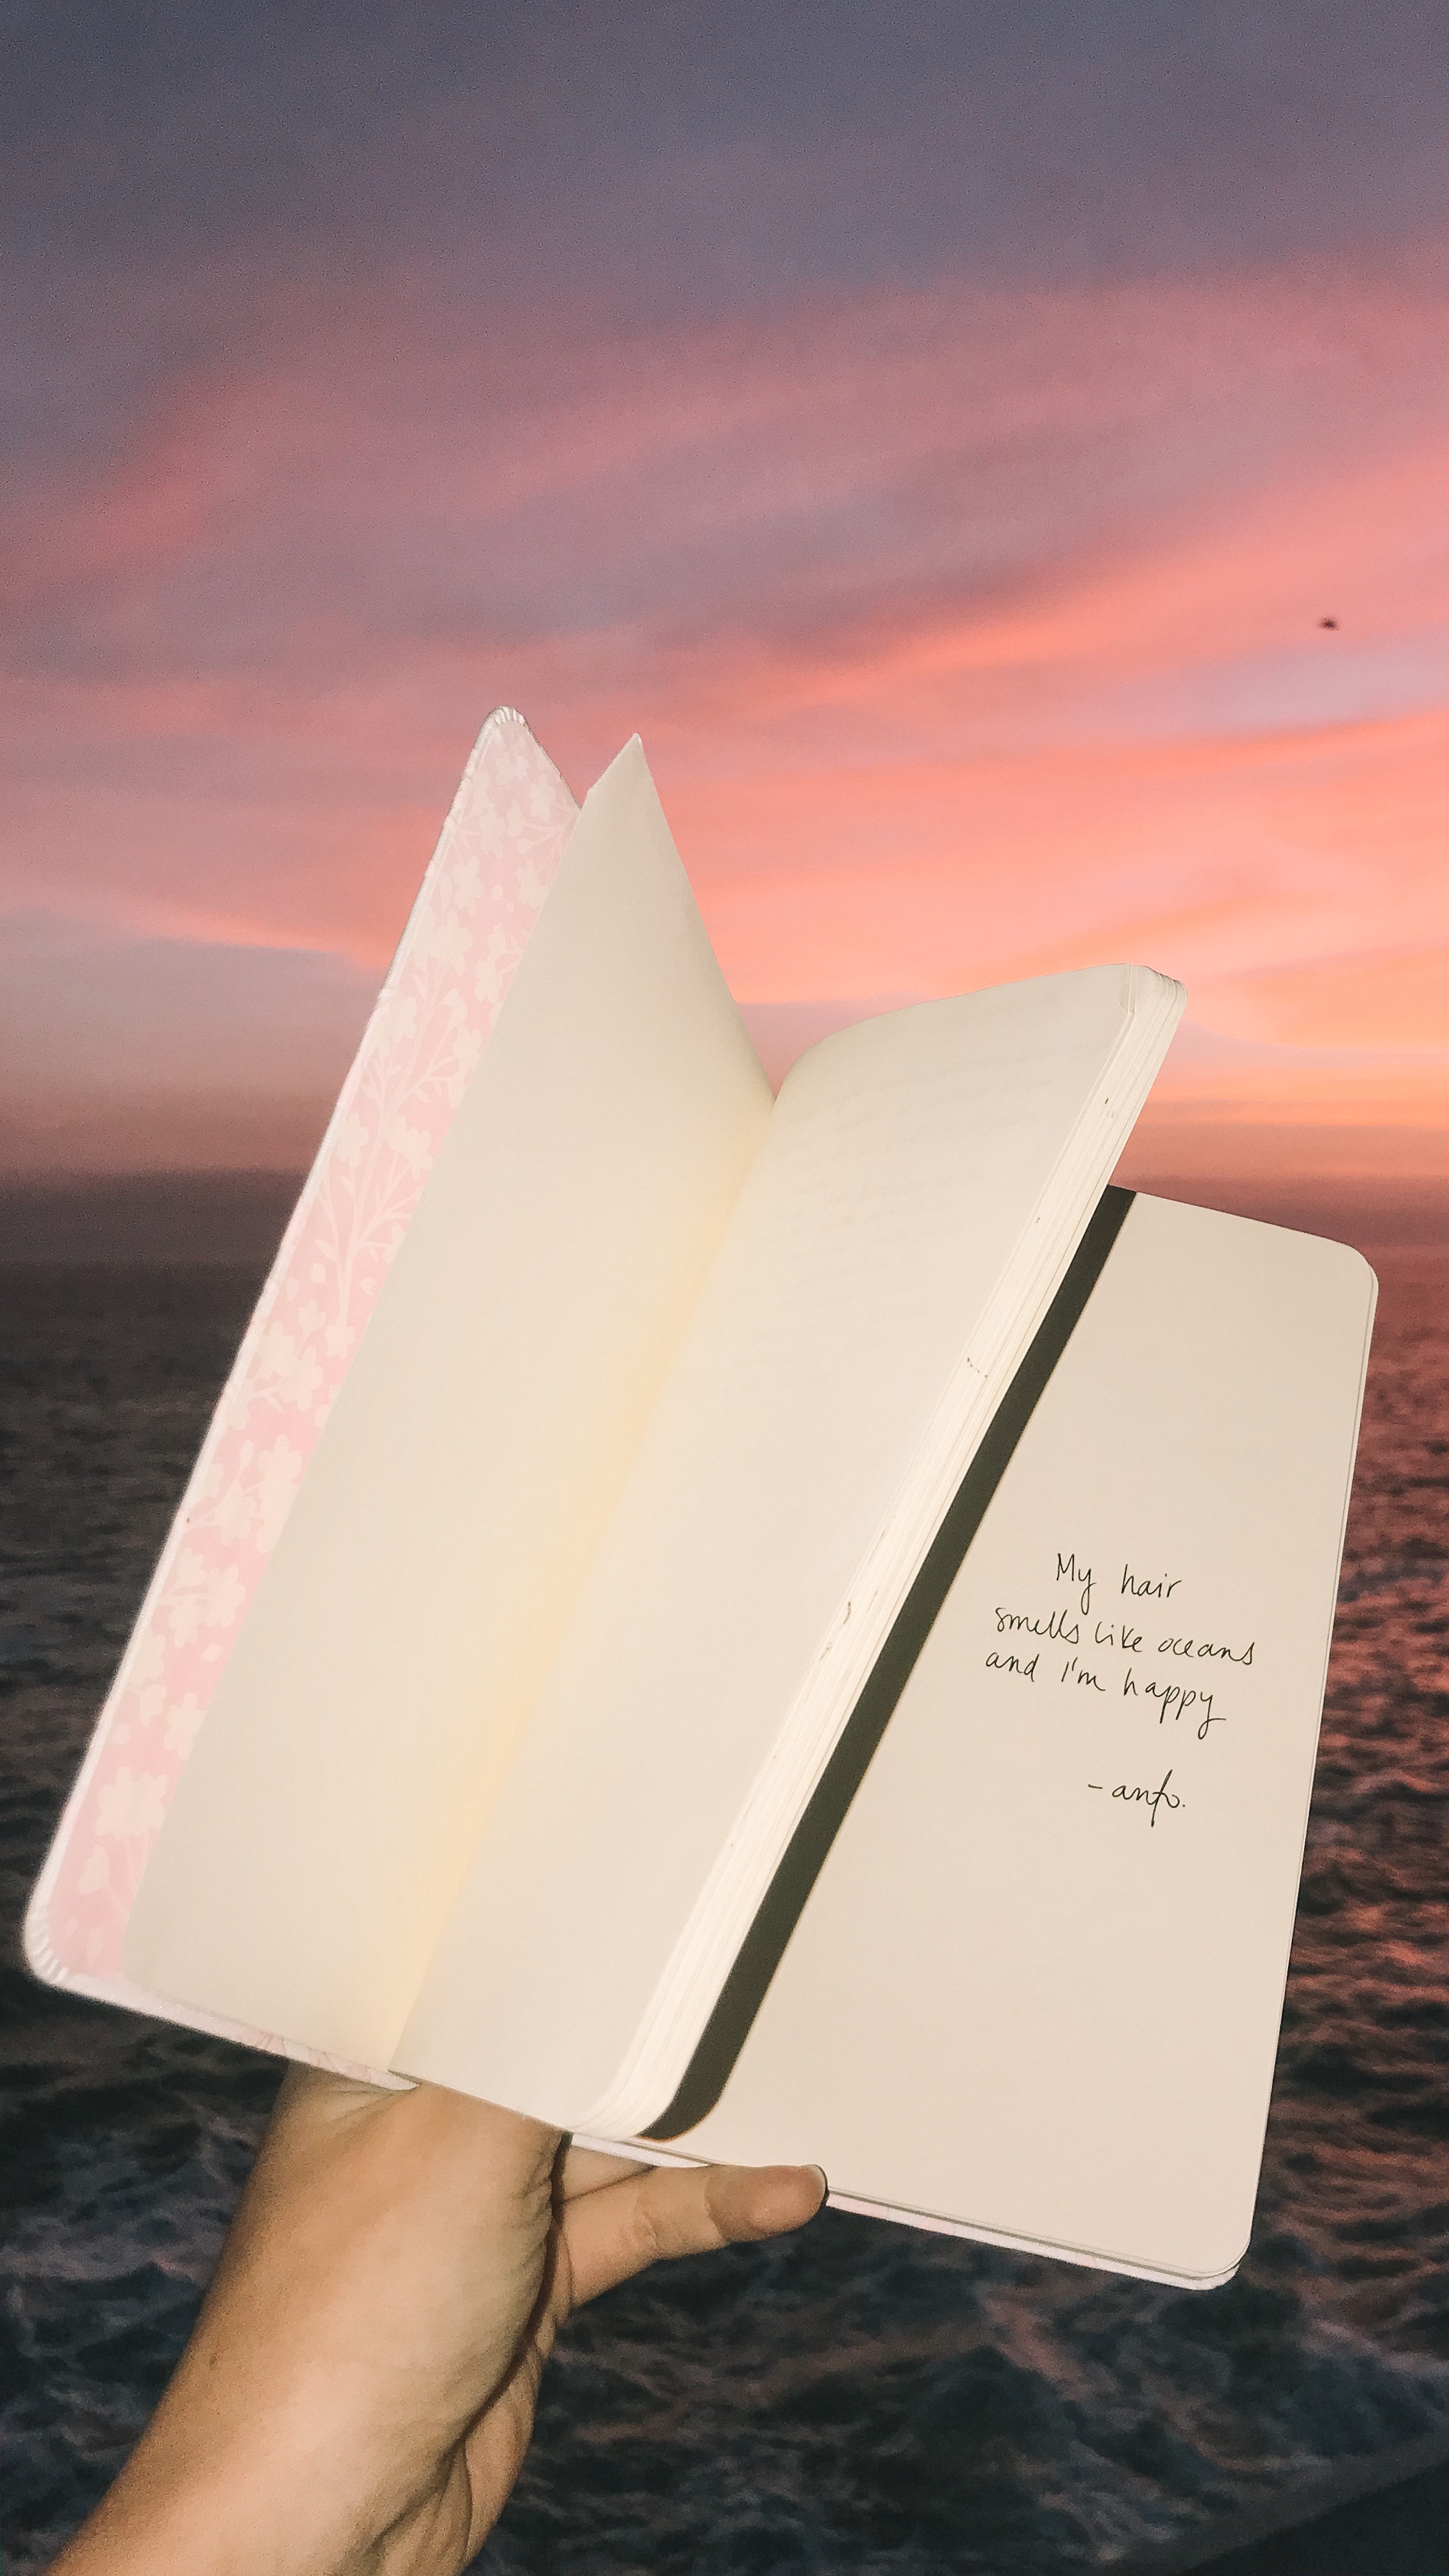 My hair
smells like oceans
and I'm happy